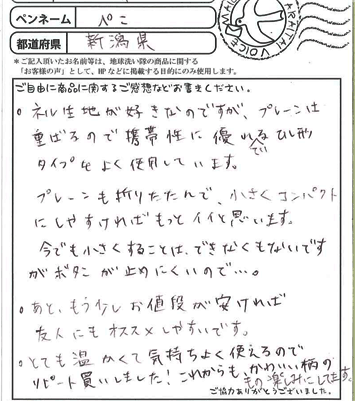 ペンネーム ぺこ
都道府県 新潟県
*ご記入頂いたお名前等は、地球洗い隊の商品に関する
「お客様の声」として、HPなどに掲載する目的にのみ使用します。
ご自由に商品に関するご感想などお書きください。
○ネル生地が好きなのですが、プレーンは
重ばるので携帯性に優れているひし形
タイプをよく使用しています。
プレーンも折りたたんで、小さくコンパクト
にしやすければもっとイイと思います。
今でも小さくすることは、できなくもないです
がボタンが止めにくいので…。
○あと、もう少しお値段が安ければ
友人にもオススメしやすいです。
○とても温かくて気持ちよく使えるので
リピート買いしました!これからも、かわいい柄の
もの楽しみにしてます。
ご協力ありがとうございました。